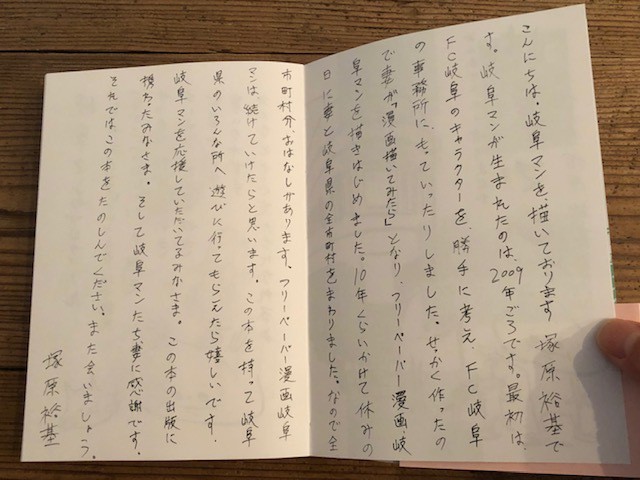 こんにちは。岐阜マンを描いております 塚原裕基で
す。岐阜マンが生まれたのは、2009年ごろです。最初は、
FC岐阜のキャラクターを、勝手に考え、FC岐阜
の事務所に、もっていったりしました。せっかく作ったの
で妻が「漫画描いてみたら」となり、フリーペーパー漫画岐
阜マンを描きはじめました。10年くらいかけて休みの
日に妻と岐阜県の全市町村をまわりました。なので全
市町村分、おはなしがあります。フリーペーパー漫画岐阜
マンは続けていけたらと思います。この本を持って岐阜
県のいろんな所へ遊びに行ってもらえたら嬉しいです。
岐阜マンを応援していただいてるみなさま。この本の出版に
携わったみなさま。そして岐阜マンたち妻に感謝です。
それではこの本をたのしんでください。また会いましょう。
塚原裕基